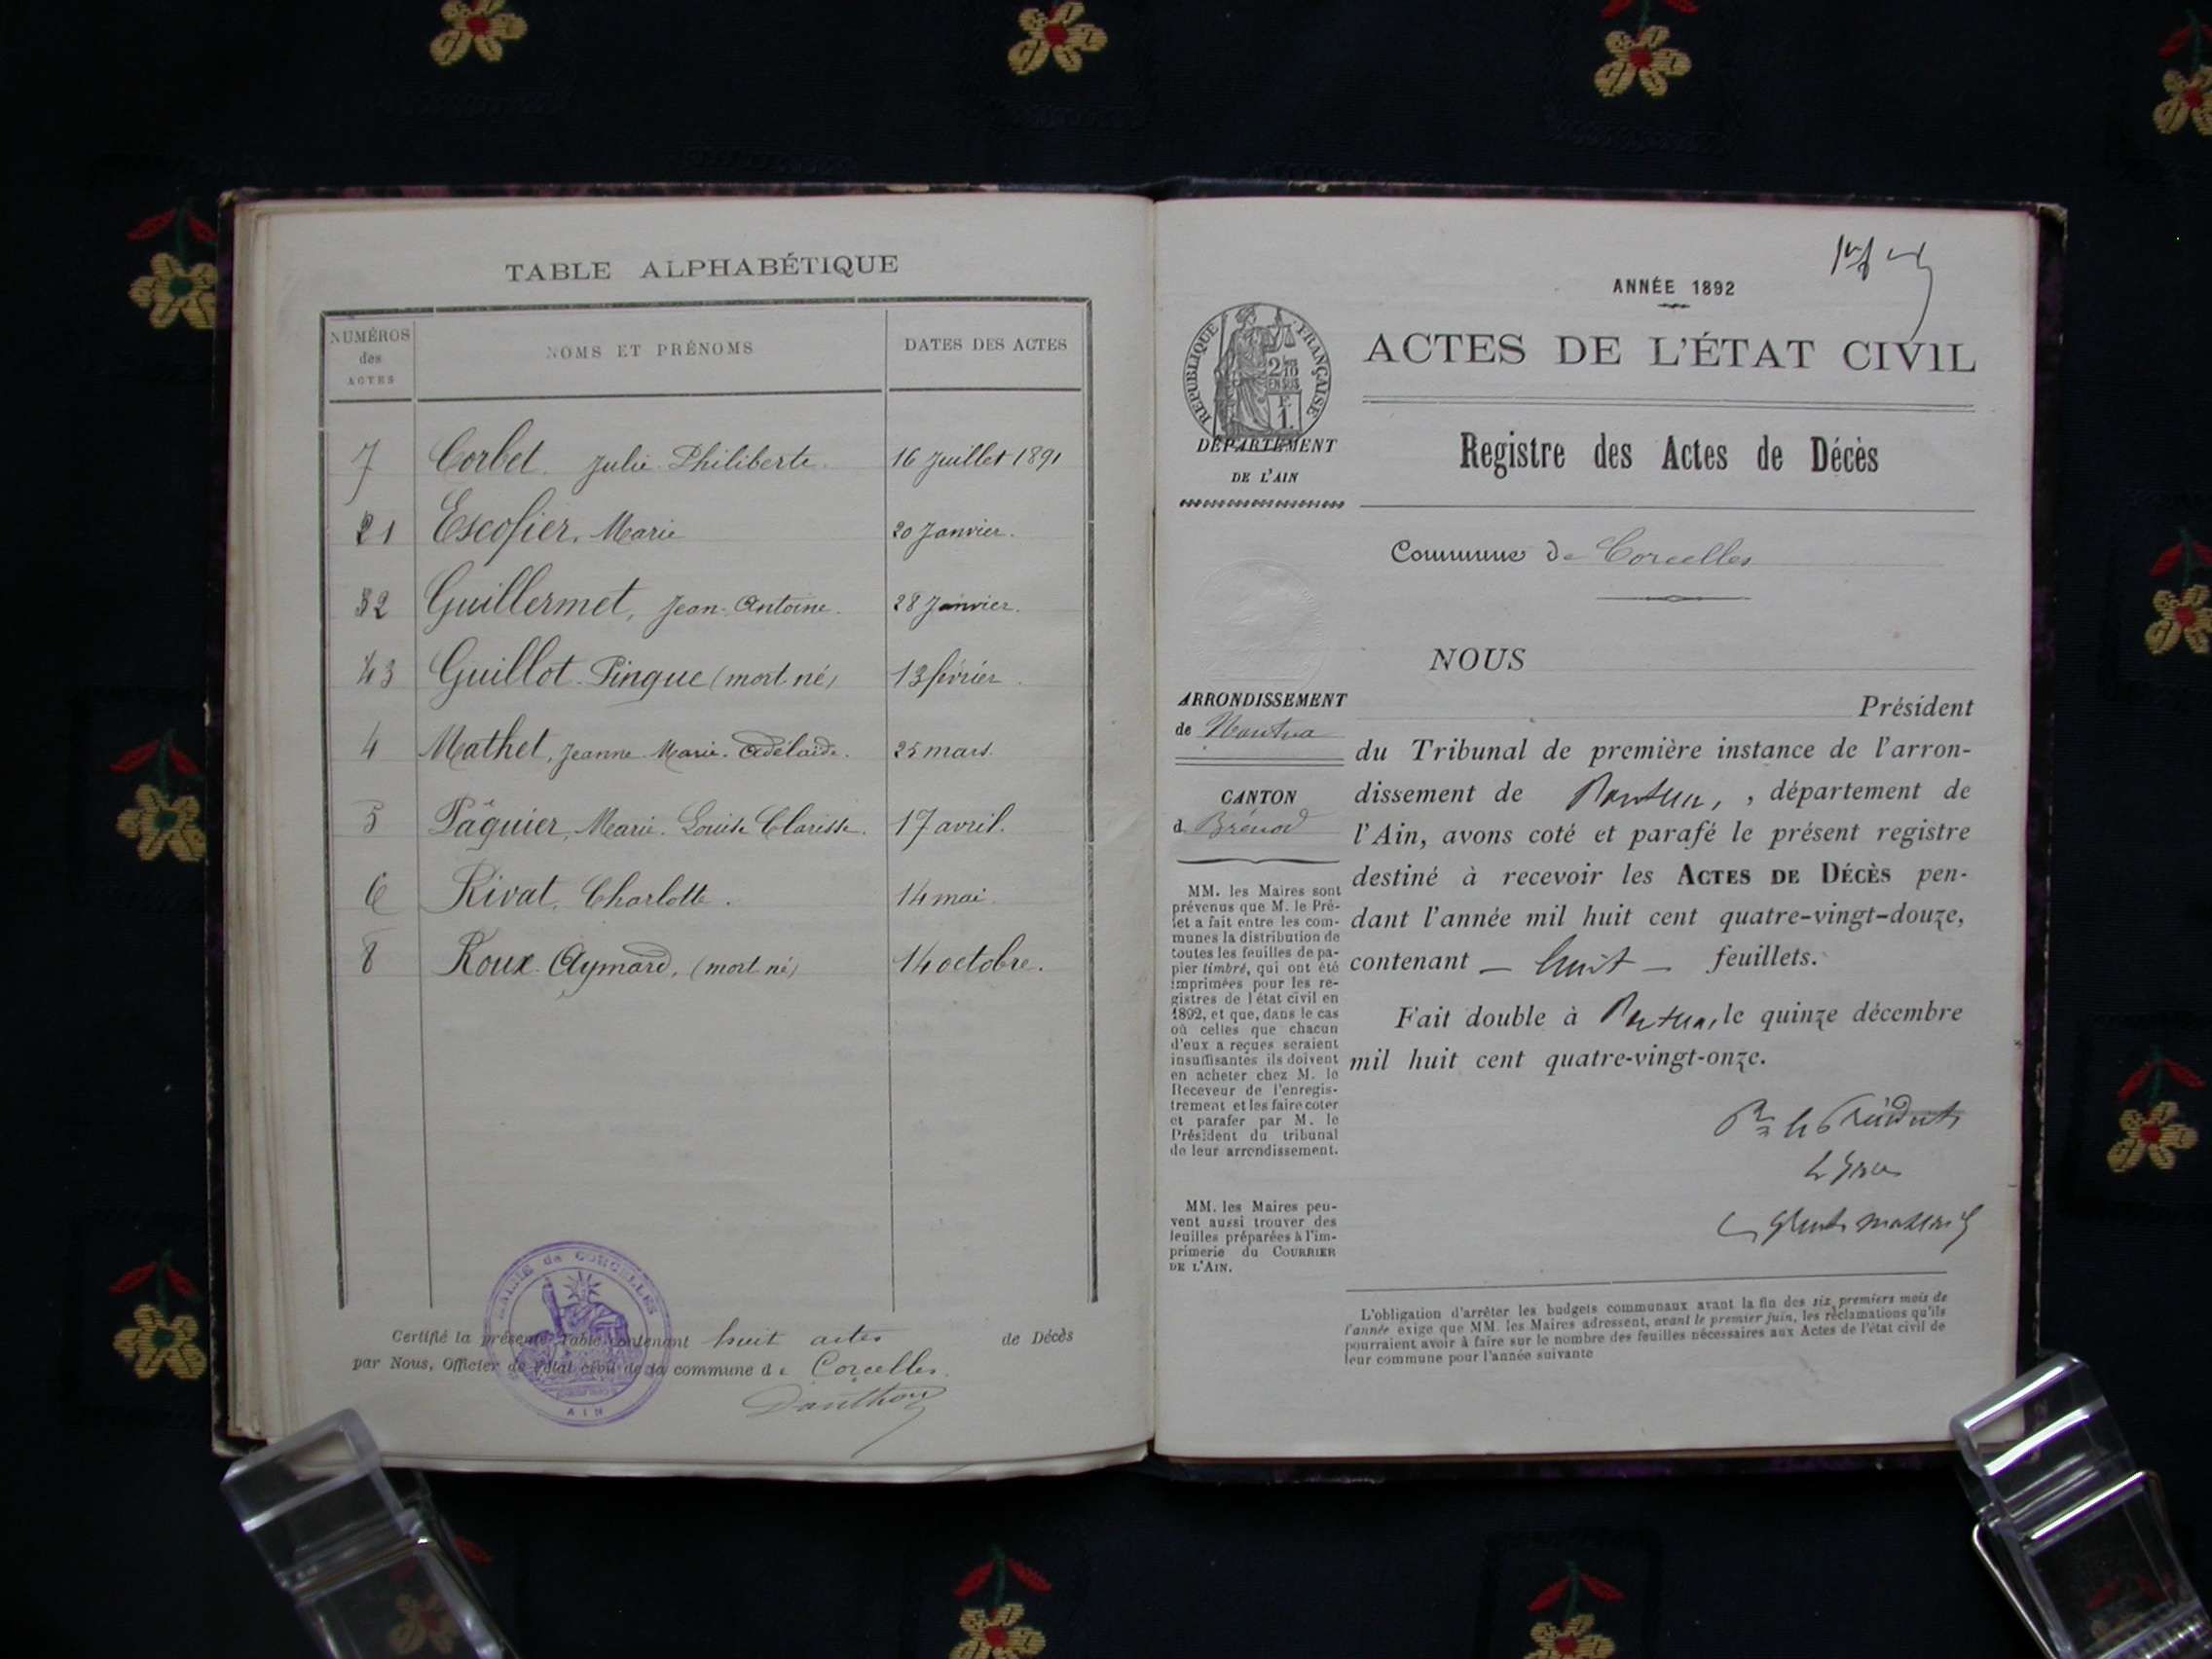 TABLE ALPHABÉTIQUE
NUMÉROS des ACTES
NOMS ET PRÉNOMS
DATES DES ACTES
7 Corbet. Julie Philiberte. 16 Juillet 1891
21 Escofier. Marie 20 Janvier.
32 Guillermet, Jean-Antoine. 28 Janvier.
43 Guillot-Pingue (mort né) 13 février.
4 Mathet, Jeanne-Marie-Adélaïde. 25 mars.
5 Pâquier, Marie-Louise Clarisse. 17 avril.
6 Rivat, Charlotte. 14 mai.
8 Roux-Aymard, (mort né) 14 octobre.
Certifié la présente Table contenant huit actes de Décès
par Nous, Officier de l'état civil de la commune de Corcelles.
Danthon
MAIRIE de CORCELLES
AIN
ANNÉE 1892
ACTES DE L'ÉTAT CIVIL
RÉPUBLIQUE FRANÇAISE
2/10 EN SUS
F. 1.
DÉPARTEMENT
DE L'AIN
Registre des Actes de Décès
Commune de Corcelles
NOUS
ARRONDISSEMENT
de Nantua
CANTON
d Brénod
MM. les Maires sont
prévenus que M. le Pré-
fet a fait entre les com-
munes la distribution de
toutes les feuilles de pa-
pier timbré, qui ont été
imprimées pour les re-
gistres de l'état civil en
1892, et que, dans le cas
où celles que chacun
d'eux a reçues seraient
insuffisantes ils doivent
en acheter chez M. le
Receveur de l'enregis-
trement et les faire coter
et parafer par M. le
Président du tribunal
de leur arrondissement.
MM. les Maires peu-
vent aussi trouver des
feuilles préparées à l'im-
primerie du COURRIER
DE L'AIN.
Président
du Tribunal de première instance de l'arron-
dissement de Nantua, , département de
l'Ain, avons coté et parafé le présent registre
destiné à recevoir les ACTES DE DÉCÈS pen-
dant l'année mil huit cent quatre-vingt-douze,
contenant — huit — feuillets.
Fait double à Nantua, le quinze décembre
mil huit cent quatre-vingt-onze.
le Président
L'obligation d'arrêter les budgets communaux avant la fin des six premiers mois de
l'année exige que MM. les Maires adressent, avant le premier juin, les réclamations qu'ils
pourraient avoir à faire sur le nombre des feuilles nécessaires aux Actes de l'état civil de
leur commune pour l'année suivante